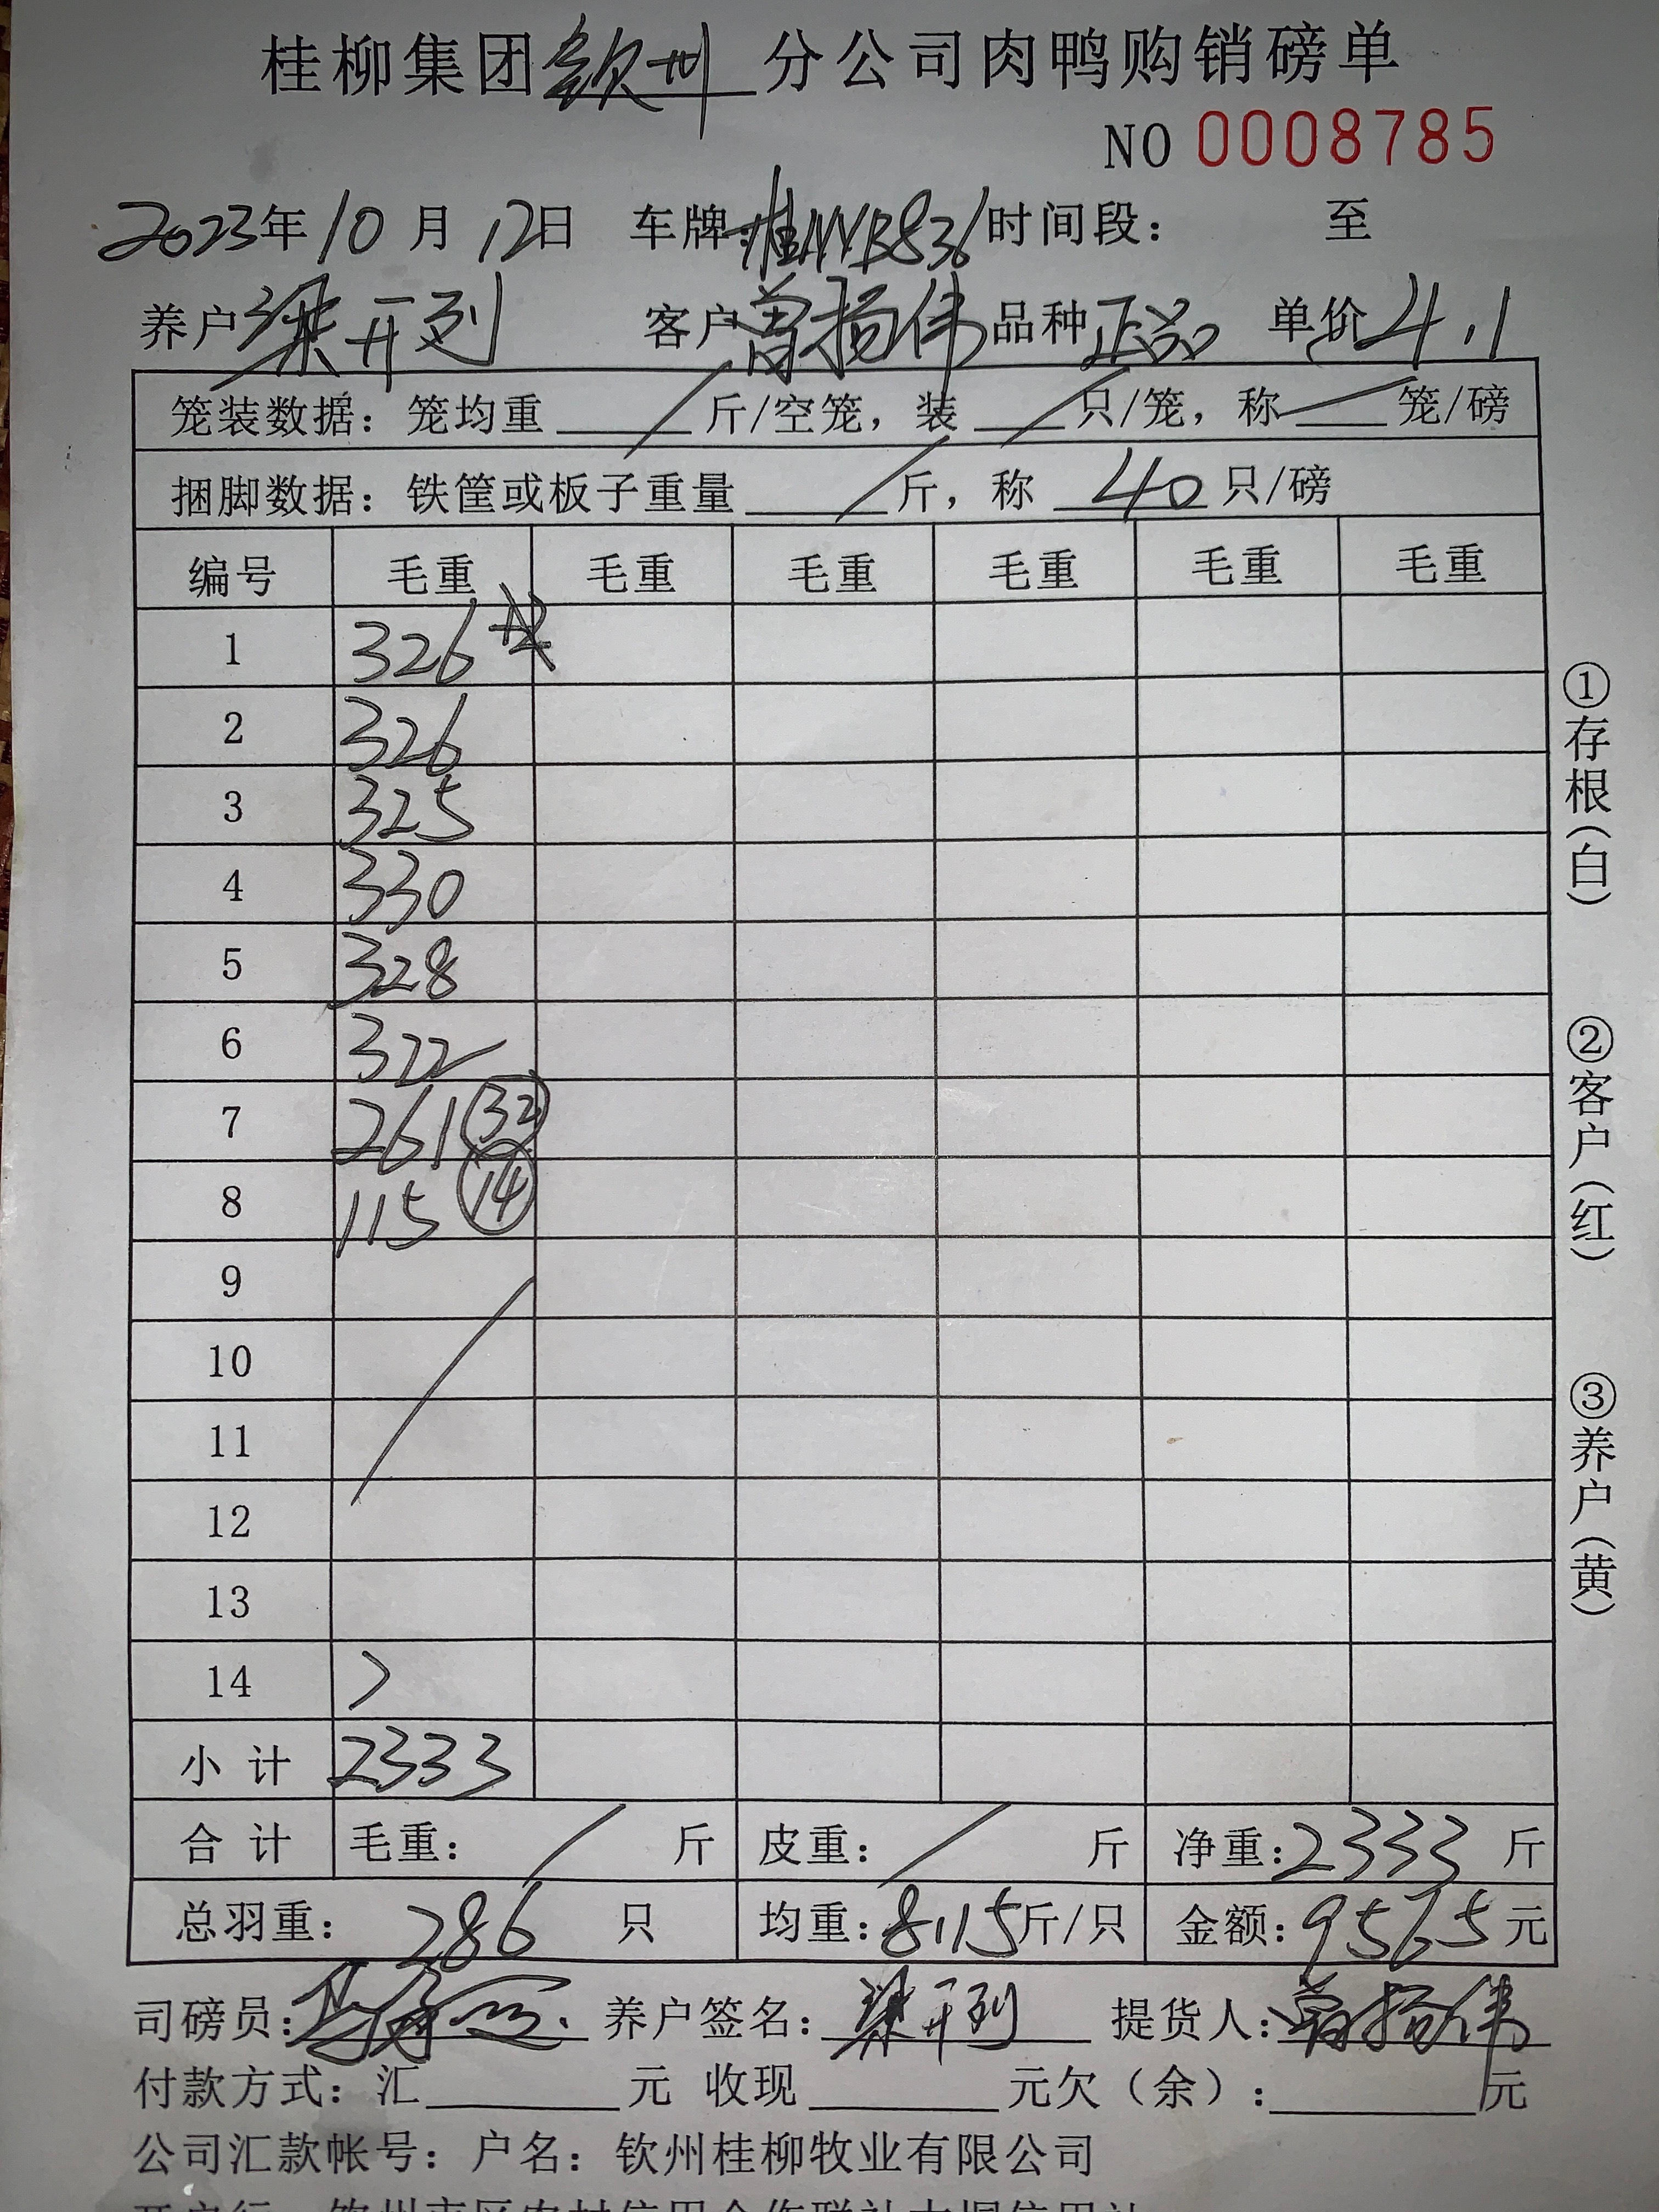 桂柳集团钦州分公司肉鸭购销磅单
NO 0008785
2023年10月12日 车牌: 时间段: 至
养户梁开列 客户曾扬伟 品种正品 单价4.1
笼装数据: 笼均重 / 斤/空笼, 装 / 只/笼, 称 / 笼/磅
捆脚数据: 铁筐或板子重量 / 斤, 称 40 只/磅
编号 毛重 毛重 毛重 毛重 毛重 毛重
1 326
2 326
3 325
4 330
5 328
6 322
7 261 32
8 115 14
9
10
11
12
13
14
小计 2333
合计 毛重: / 斤 皮重: / 斤 净重:2333 斤
总羽重: 286 只 均重:8.15斤/只 金额:9565元
司磅员: 养户签名: 梁开列 提货人: 曾扬伟
付款方式: 汇 元 收现 元欠(余): 元
公司汇款帐号: 户名: 钦州桂柳牧业有限公司
①存根(白) ②客户(红) ③养户(黄)